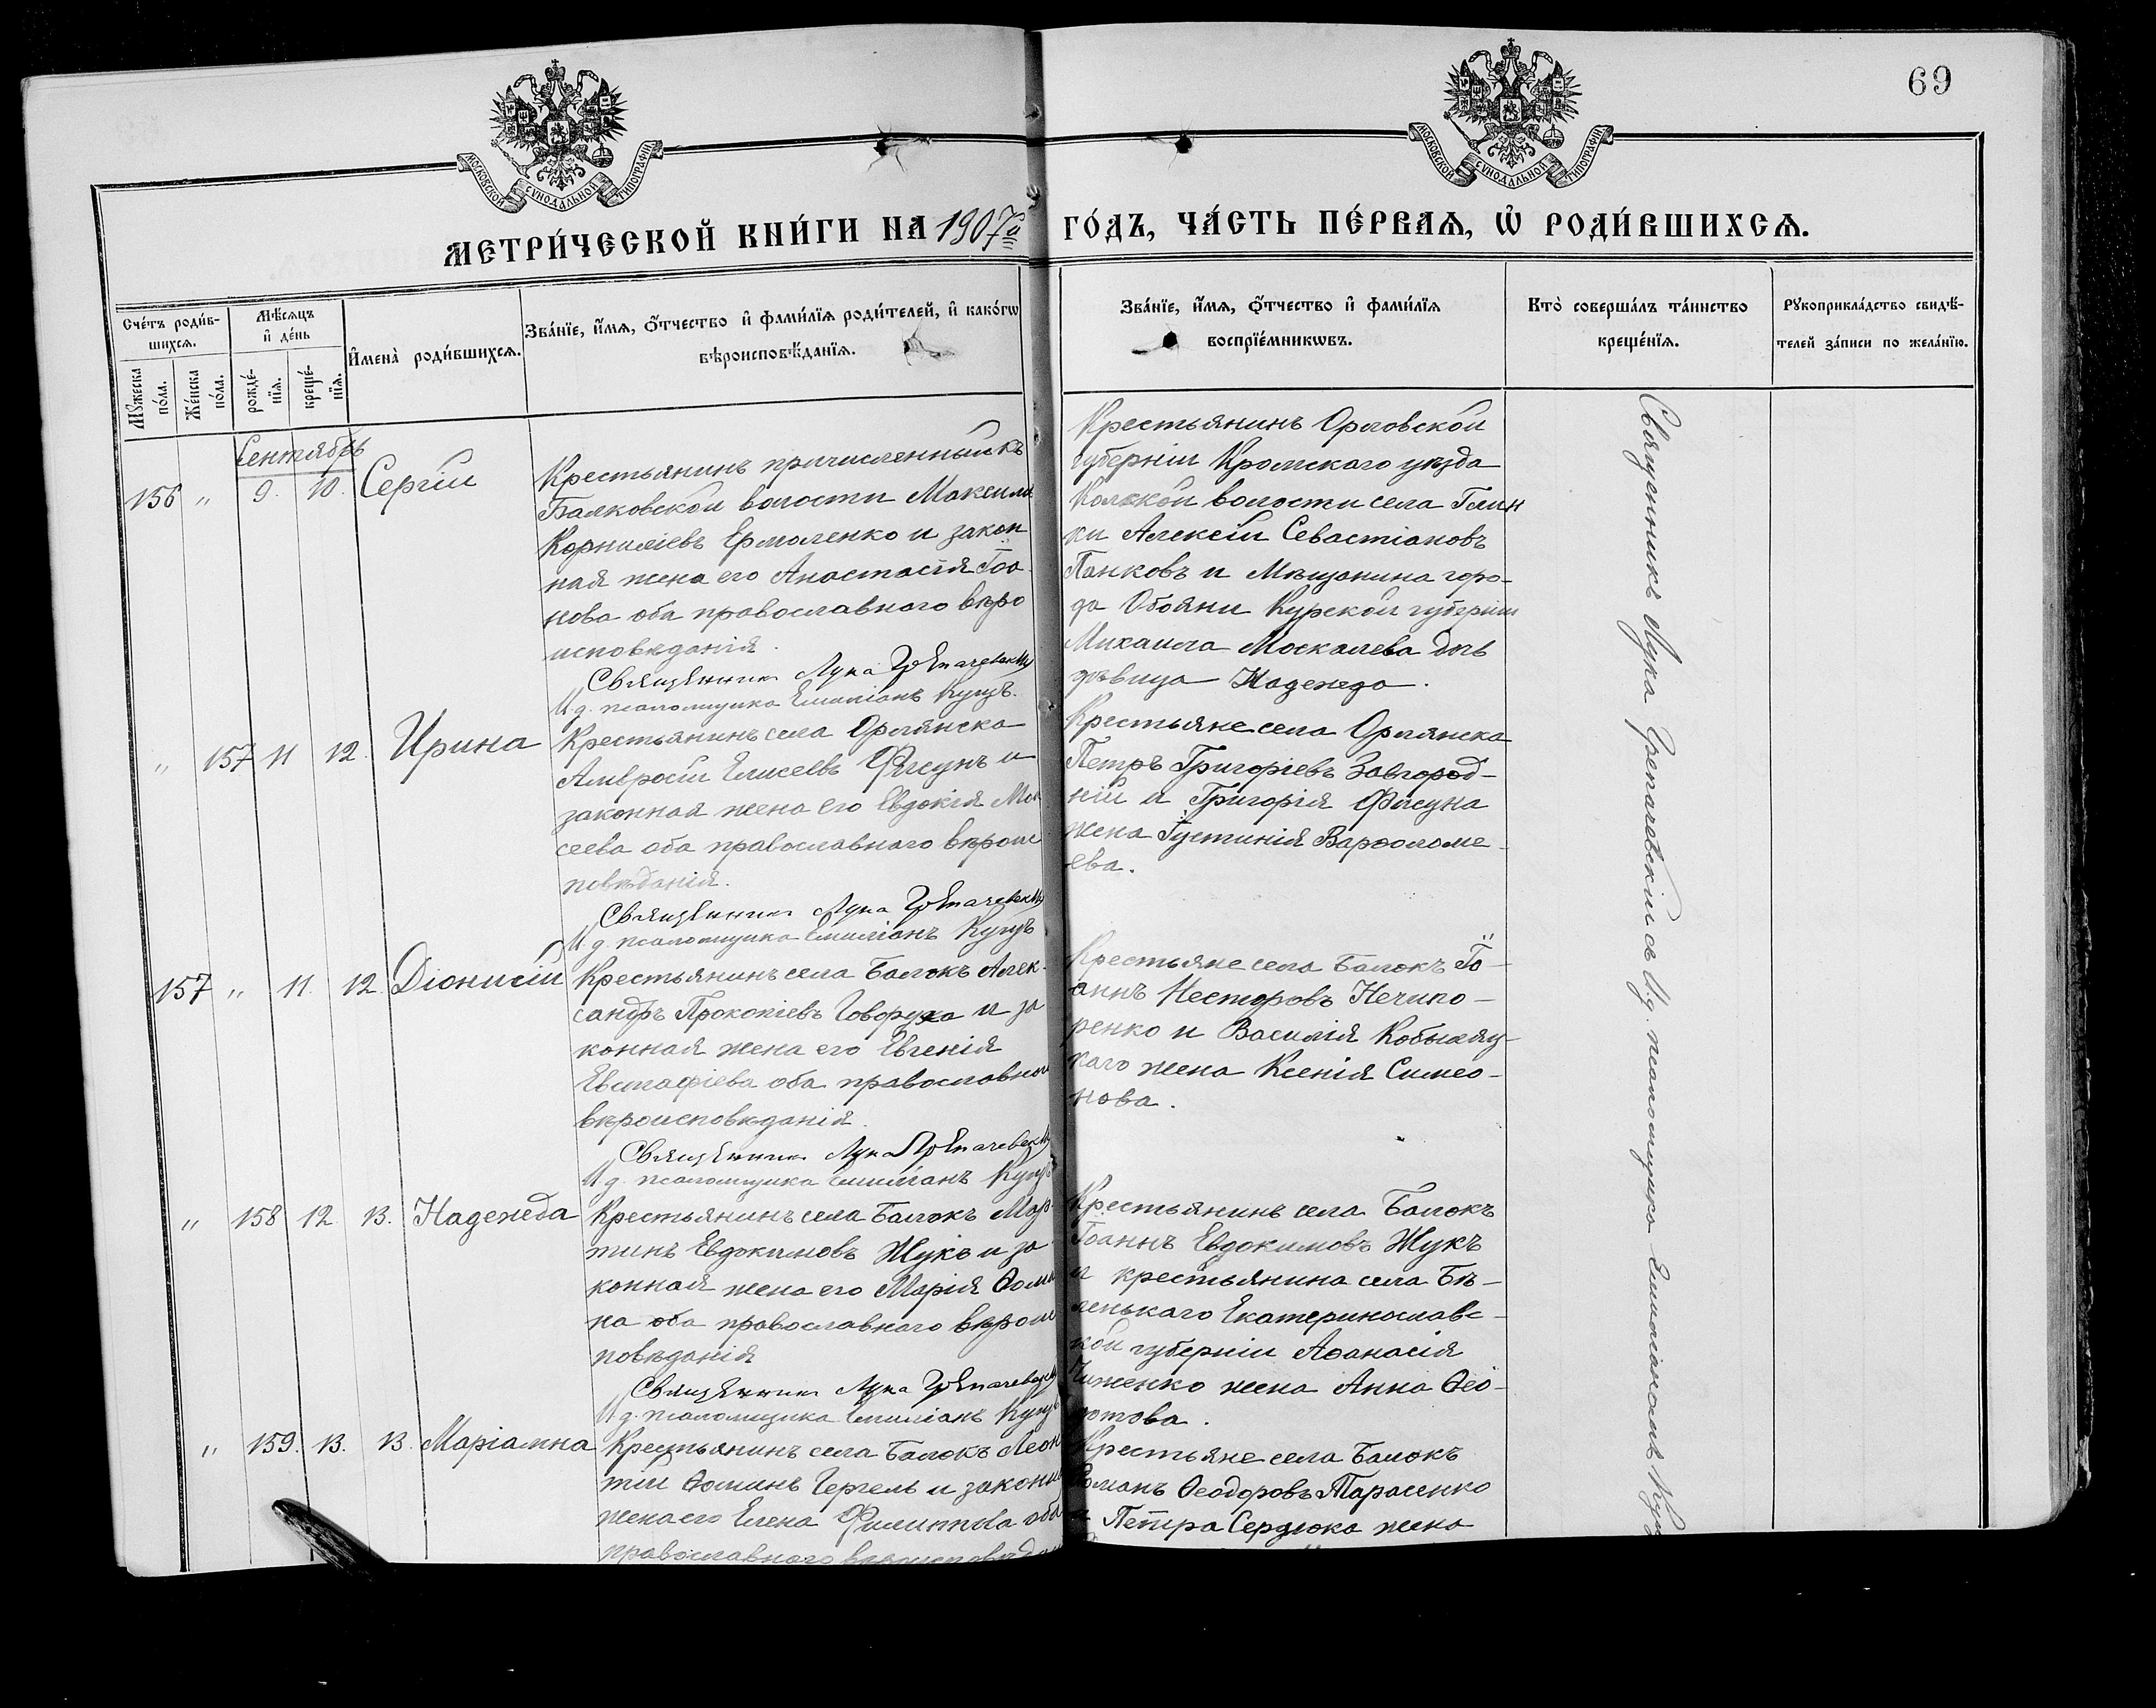 69
МОСКОВСКОЙ СУНОДАЛЬНОЙ ТИПОГРАФІИ
МОСКОВСКОЙ СУНОДАЛЬНОЙ ТИПОГРАФІИ
МЕТРИ́ЧЕСКОЙ КНИ́ГИ НА 1907й ГО́ДЪ, ЧА́СТЬ ПЕ́РВАЯ, Ѽ РОДИ́ВШИХСЯ.
Сче́тъ роди́в-
шихся.
Мѣ́сяцъ
и҆ де́нь
И҆мена̀ роди́вшихся.
Зва́нїе, и҆́мя, ѻ҆́тчество и҆ фами́лїя роди́телей, и҆ како́гѡ
вѣроисповѣ́данїя.
Му́жеска
по́ла.
Же́нска
по́ла.
рожде́-
нїя.
креще́-
нїя.
Зва́нїе, и҆́мя, ѻ҆́тчество и҆ фами́лїя
воспрїе́мникѡвъ.
Кто̀ соверша́лъ та́инство
креще́нїя.
Рꙋкоприкла́дство свидѣ́-
телей за́писи по жела́нїю.
Сентябрь
156 " 9. 10. Сергій
Крестьянинъ причисленный къ
Балковской волости Максимъ
Корниліевъ Ермоленко и закон
ная жена его Анастасія Іоа-
нова оба православнаго вѣро
исповѣданія.
Священникъ Лука Грепачевскій
И.д. псаломщика Емиліанъ Куцъ.
Крестьянинъ Орловской
губерніи Кромскаго уѣзда
волости села Глин
ки Алексій Севастіановъ
Панковъ и Мѣщанина горо-
да Обояни Курской губерніи
Михаила Москалева дочь
дѣвица Надежда.
" 157 11 12. Ирина
Крестьянинъ села Орлянска
Амвросій Елисеевъ Фисунъ и
законная жена его Евдокія Мои
сеева оба православнаго вѣроис
повѣданія.
Священникъ Лука Грепачевскій
И.д. псаломщика Емиліанъ Куцъ
Крестьяне села Орлянска
Петръ Григоріевъ Завгород-
ній и Григорія Фисуна
жена Іустинія Варѳоломе-
ева.
157 " 11. 12. Діонисій
Крестьянинъ села Балокъ Алек-
сандръ Прокопіевъ Говоруха и за
конная жена его Евгенія
Евстафіева оба православнаго
вѣроисповѣданія.
Священникъ Лука Грепачевскій
И.д. псаломщика Емиліанъ Куцъ
Крестьяне села Балокъ Іо-
аннъ Несторовъ Нечипо-
ренко и Василія Кобыляц-
каго жена Ксенія Симео-
нова.
" 158 12. 13. Надежда
Крестьянинъ села Балокъ Мар-
тинъ Евдокимовъ Жукъ и за
конная жена его Марія Ѳоми
на оба православнаго вѣроис
повѣданія
Священникъ Лука Грепачевскій
И.д. псаломщика Емиліанъ Куцъ
Крестьянинъ села Балокъ
Іоаннъ Евдокимовъ Жукъ
и крестьянина села Бѣ-
ленькаго Екатеринославс-
кой губерніи Аѳанасія
Чиженко жена Анна Ѳео-
дотова.
" 159. 13. 13. Маріамна
Крестьянинъ села Балокъ Леон
тій Ѳоминъ Гергель и законн
жена его Елена Филиппова оба
православнаго вѣроисповѣдан
Крестьяне села Балокъ
Романъ Ѳеодоровъ Тарасенко
и Петра Сердюка жена
Священникъ Лука Грепачевскій съ И.д. псаломщика Емиліаномъ Куц